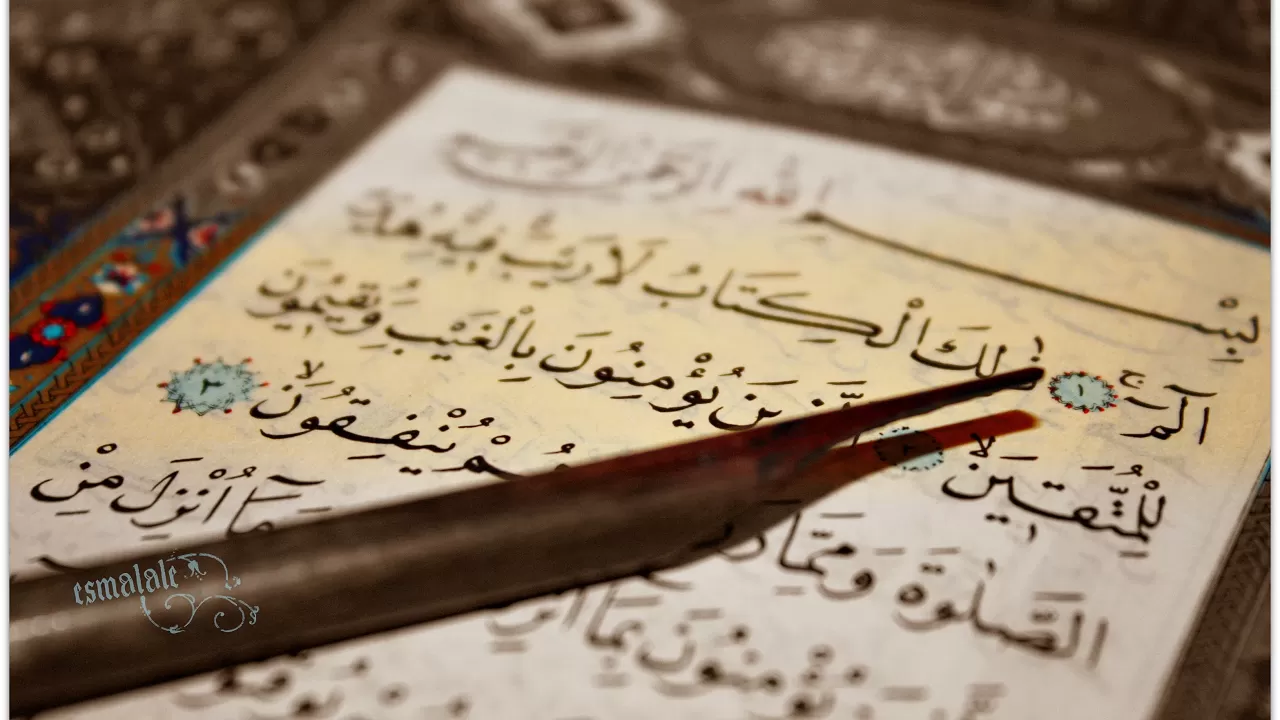 بِسْــــمِ اللهِ الرَّحْمٰنِ الرَّحِيمِ
الٓمٓ ۚ ١ ذٰلِكَ الْكِتَابُ لَا رَيْبَ فِيهِ هُدًى
لِلْمُتَّقِينَ ۙ ٢ اَلَّذِينَ يُؤْمِنُونَ بِالْغَيْبِ وَيُقِيمُونَ
الصَّلٰوةَ وَمِمَّا هُمْ يُنْفِقُونَ ۙ ٣
يُؤْمِنُونَ بِمَا اُنْزِلَ مَٓا اُنْزِلَ مِنْ
يُوقِنُونَ
esmalale